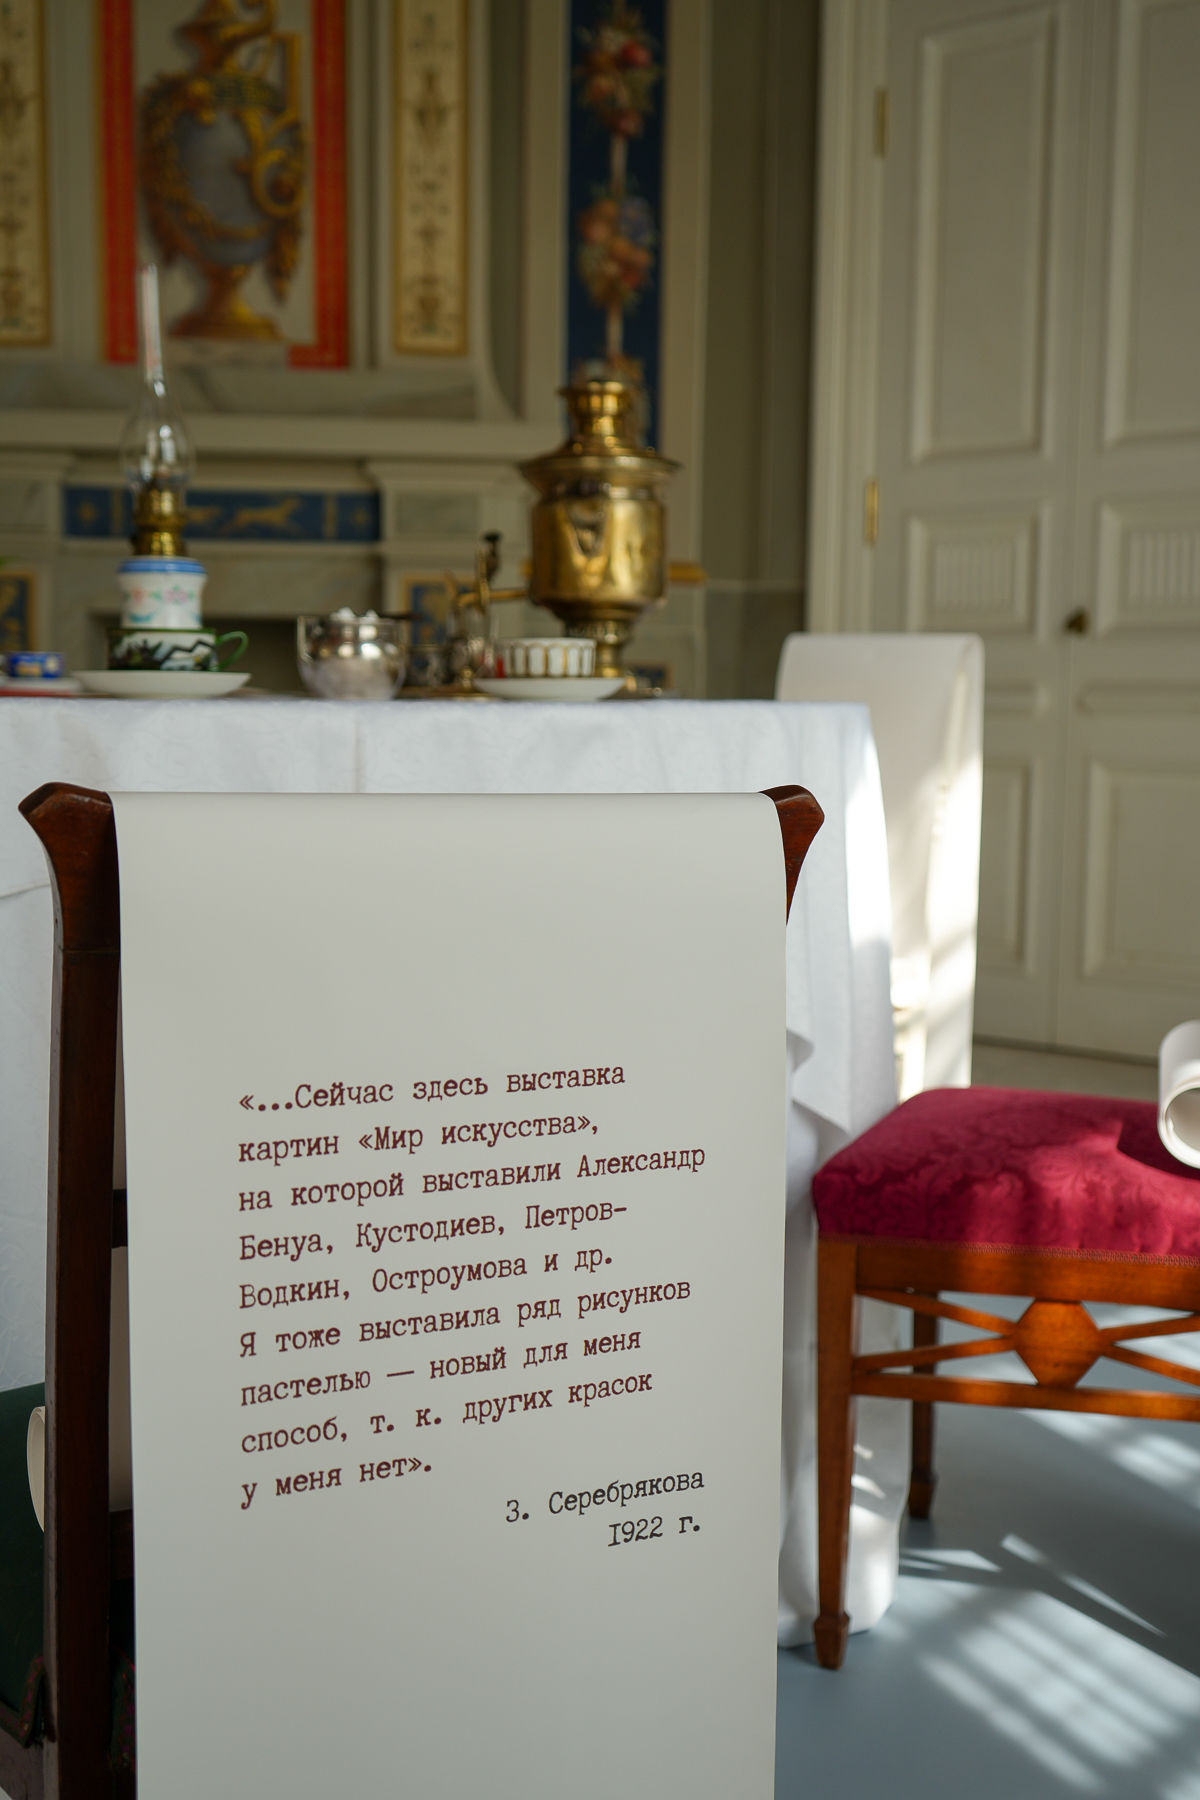 «...Сейчас здесь выставка
картин «Мир искусства»,
на которой выставили Александр
Бенуа, Кустодиев, Петров-
Водкин, Остроумова и др.
Я тоже выставила ряд рисунков
пастелью — новый для меня
способ, т. к. других красок
у меня нет».
З. Серебрякова
1922 г.